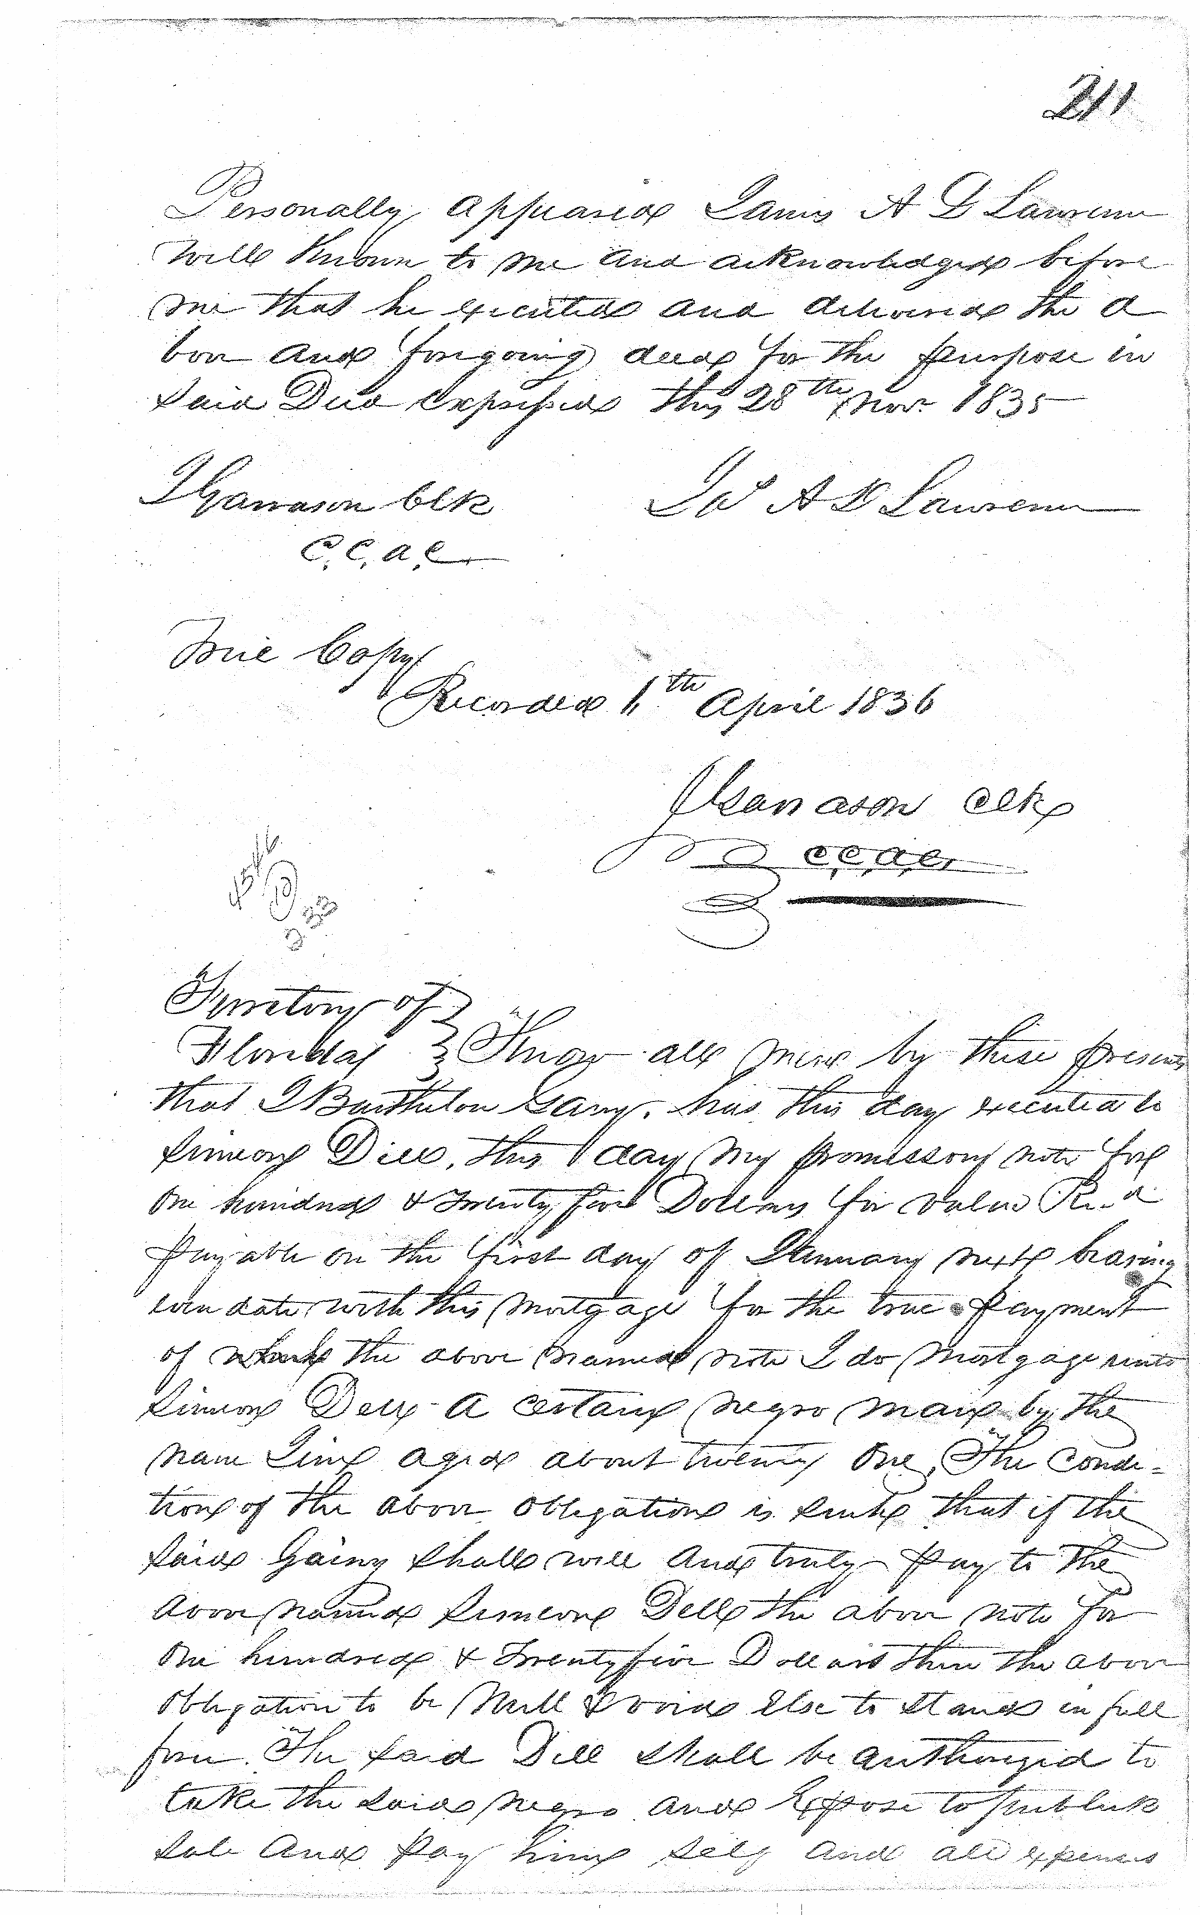 211
Personally appeared James A D Lawrence
well known to me and acknowledged before
me that he executed and delivered the a
bove and foregoing deed for the purpose in
said Deed expressed this 28th Nov. 1835
Garrason Clk
Jas A D Lawrence
C. C. A. C.
True Copy
Recorded 11th April 1836
Garrason Clk
C. C. A. C.
Territory of
Florida } Know all men by these presents
that I Barthelow Gany. has this day executed to
Simeon Dell, this day my promissory note for
one hundred & twenty five Dollars for value Rec.d
payable on the first day of January next bearing
even date with this Mortgage for the true payment
of which the above named note I do Mortgage unto
Simeon Dell a certain negro man by the
name Jim aged about twenty One, The Condi-
tion of the above Obligation is such that if the
said Gainy shall well and truly pay to the
above named Simeon Dell the above note for
One hundred & twenty five Dollars then the above
Obligation to be Null & void Else to stand in full
force. The said Dell shall be authorized to
take the said negro and Expose to publick
sale and pay him self and all expenses